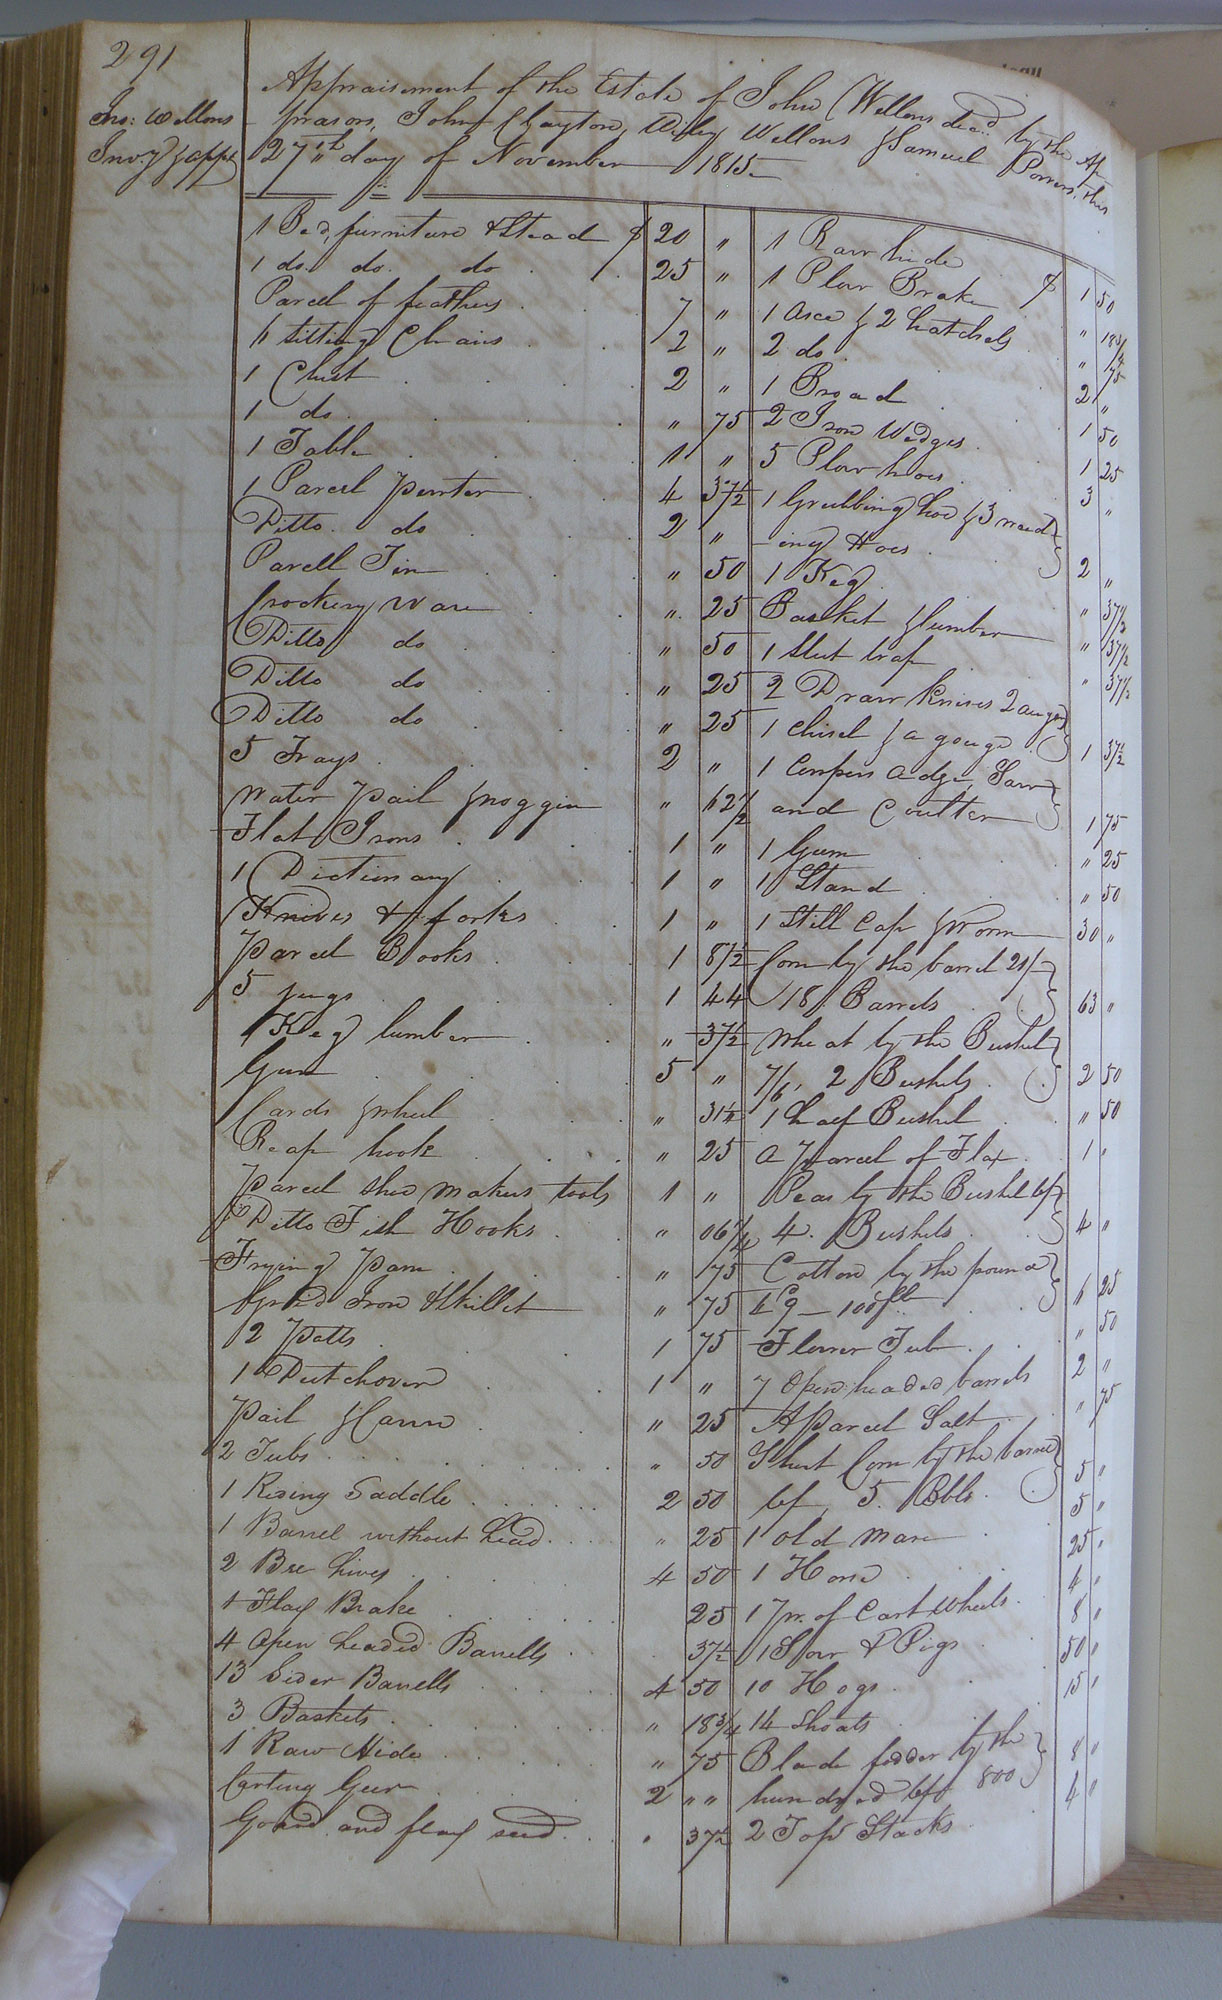 291
Jno: Wellons
Invy & appt
Appraisement of the Estate of John Wellons decd. by the Ap-
prasors, John Clayton, Wiley Wellons & Samuel Powers, this
27th day of November 1815
1 Bed, furniture & Stead $ 20 "
1 do. do. do 25 "
Parcel of feathers 7 "
6 sitting Chairs 2 "
1 Chest 2 "
1 do. " 75
1 Table 1 "
1 Parcel pewter 4 37 1/2
Ditto. do 2 "
Parcell Tin " 50
Crockery ware " 25
Ditto do " 50
Ditto do " 25
Ditto do " 25
5 Trays 2 "
Water pail & noggin " 62 1/2
Flat Irons 1 "
1 Dictionary 1 "
Knives & forks 1 "
Parcel Books 1 87 1/2
5 jugs 1 44
1 Keg lumber " 37 1/2
Gun 5 "
Cards & wheel " 31 1/4
Reap hook " 25
Parcel shoe makers tools 1 "
Ditto Fish Hooks " 06 1/4
Frying pan " 75
Grid Iron & Skillet " 75
2 Potts 1 75
1 Dutchoven 1 "
Pail " 25
2 Tubs " 50
1 Rising Saddle 2 50
1 Barrel without head " 25
2 Bee hives 4 50
1 Flax Brake 25
4 open headed Barrells 37 1/2
13 Sider Barrells 4 50
3 Baskets " 18 3/4
1 Raw Hide " 75
Carting Geer 2 " "
Gourd and flax seed " 37 1/2
1 Raw hide $ 1 50
1 Plow Brake " 18 3/4
1 axe & 2 hatchels " 75
2 do 2 "
1 Broad 1 50
2 Iron Wedges 1 25
5 Plow hoes 3 "
1 Grubbing hoe & 3 weed-
ing Hoes 2 "
1 Keg " 37 1/2
Basket & lumber " 37 1/2
1 Steel trap " 37 1/2
2 Draw knives 2 augers
1 chisel & a gouge 1 37 1/2
1 Coopers adze, Saw
and Coulter 1 75
1 Gum " 25
1 Stand " 50
1 Still Cap & Worm 30 "
Corn by the barrel 21/-
18 Barrels 63 "
Wheat by the Bushel
7/6, 2 Bushels 2 50
1 half Bushel " 50
A parcel of Flax 1 "
Peas by the Bushel 6/
4 Bushels 4 "
Cotton by the pound
100 lb 6 25
Flower Tub " 50
7 Open headed barrels 2 "
A Parcel Salt " 75
Short Corn by the barrel
6/ 5 Bbls 5 "
1 old Mare 5 "
1 Horse 25 "
1 pr. of Cart Wheels 4 "
1 Sow & Pigs 8 "
10 Hogs 50 "
14 Shoats 15 "
Blade fodder by the
hundred 6/ 800 8 "
2 Top Stacks 4 "